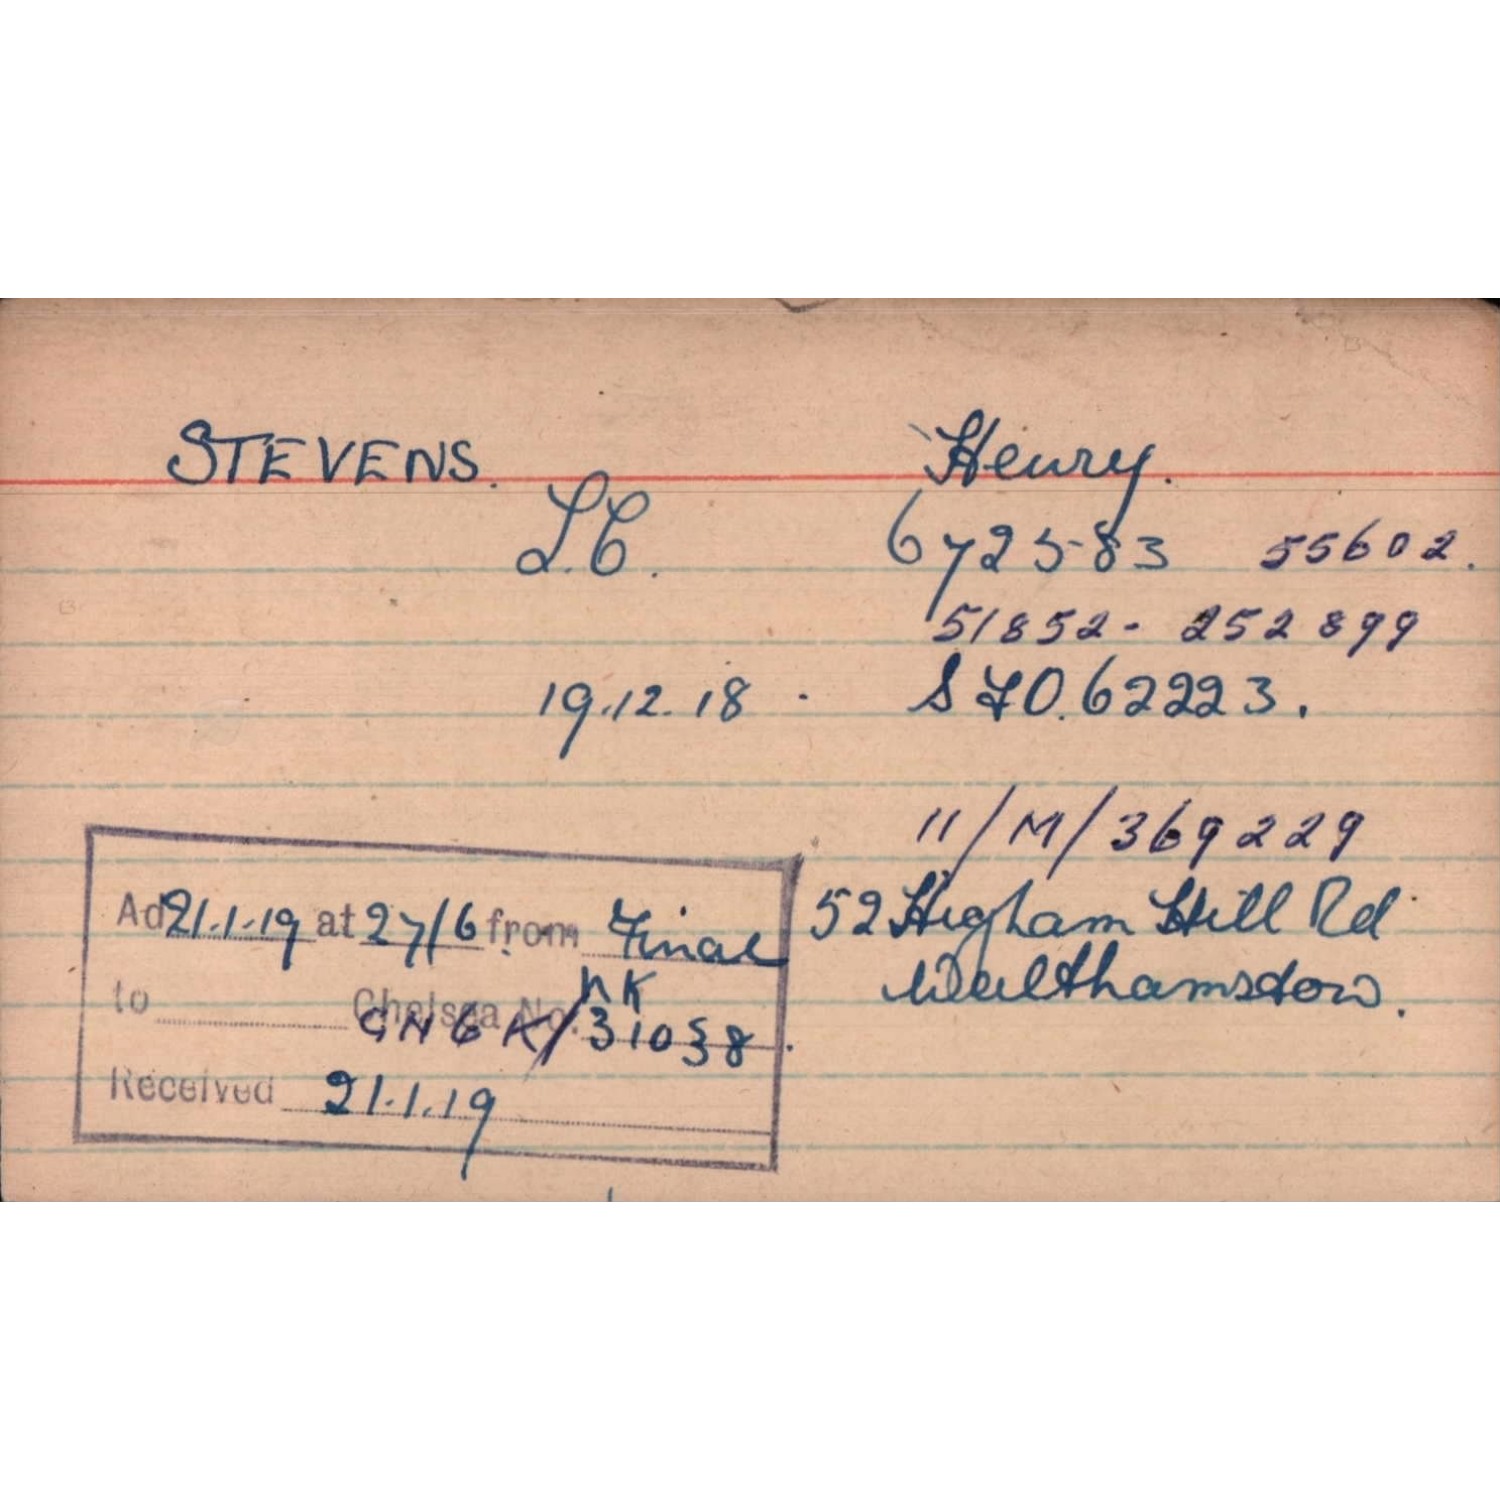 STEVENS. Henry.
L.C. 672583 55602.
51852 - 252899
19.12.18 . S FO. 62223.
11/M/369229
52 Higham Hill Rd
Walthamstow.
Ad 21.1.19 at 27/6 from Final
NK
to Chelsea No. 31058.
Received 21.1.19